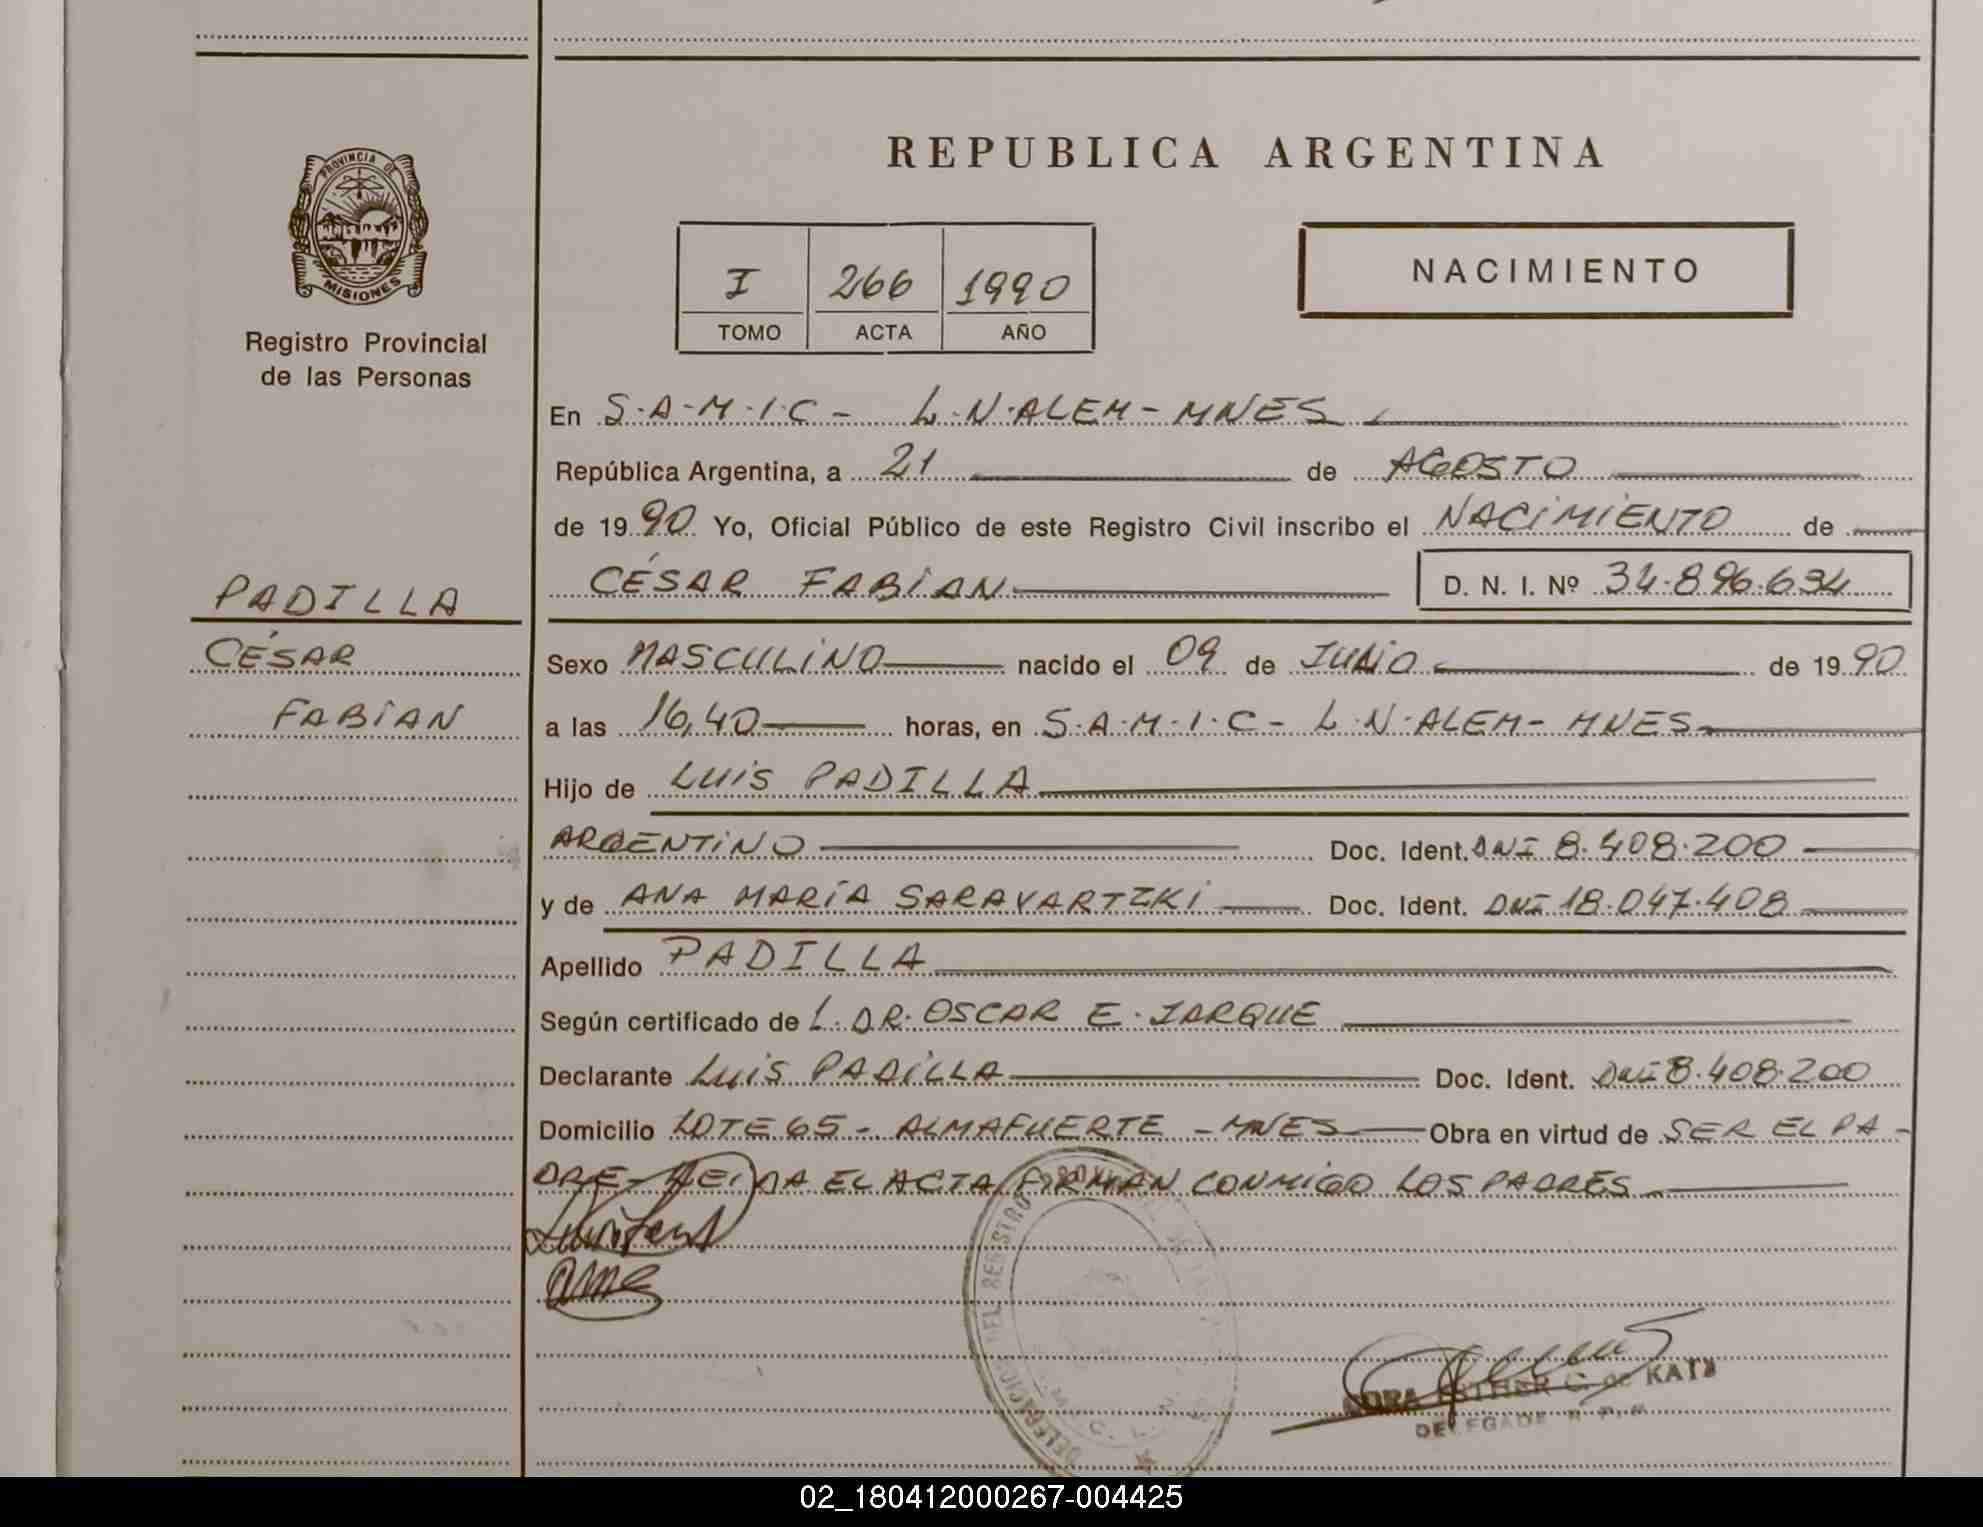 PROVINCIA DE
MISIONES
Registro Provincial
de las Personas
PADILLA
CÉSAR
FABIAN
REPUBLICA ARGENTINA
I 266 1990
TOMO ACTA AÑO
NACIMIENTO
En S.A.M.I.C - L.N.ALEM - MNES
República Argentina, a 21 de AGOSTO
de 1990 Yo, Oficial Público de este Registro Civil inscribo el NACIMIENTO de
CÉSAR FABIAN D. N. I. Nº 34.896.634
Sexo MASCULINO nacido el 09 de de 1990
a las 16,40 horas, en S.A.M.I.C - L.N.ALEM - MNES
Hijo de LUIS PADILLA
ARGENTINO Doc. Ident. DNI 8.408.200
y de ANA MARÍA SARAVARTZKI Doc. Ident. DNI 18.047.408
Apellido PADILLA
Según certificado de L. DR. OSCAR E. JARQUE
Declarante LUIS PADILLA Doc. Ident. DNI 8.408.200
Domicilio LOTE 65 - ALMAFUERTE - MNES Obra en virtud de SER EL PA-
DRE - LEIDA EL ACTA FIRMAN CONMIGO LOS PADRES
DEL REGISTRO
ESTHER C. de KATZ
02_180412000267-004425